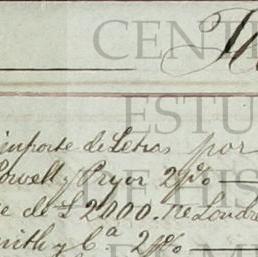 CENT
ESTU
importe de Letras por
Powell y Pryor 2 1/2 %
DE HIS
e de £ 2000. re Londre
mith y Cª 2 1/2 %